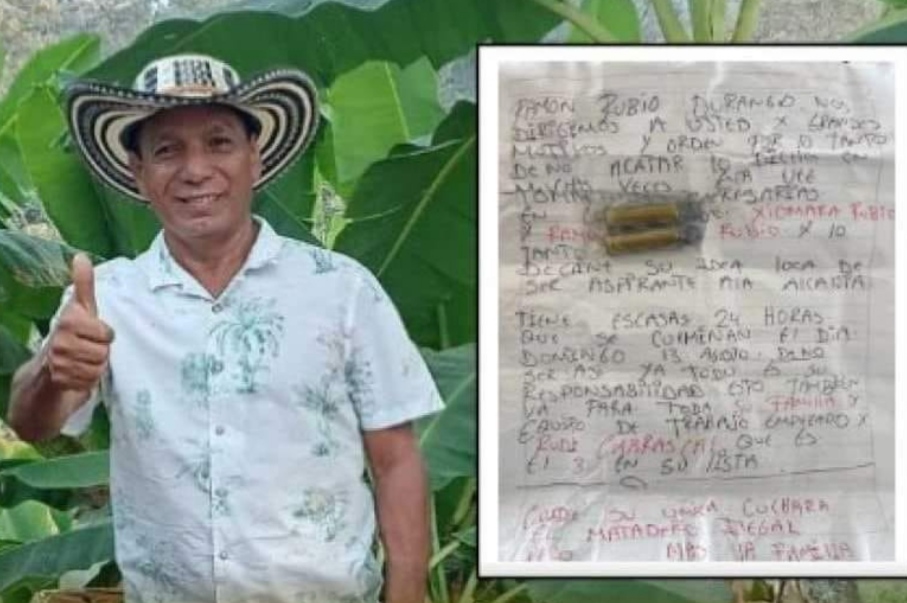 RAMON RUBIO DURANGO NOS
DIRIGEMOS A USTED X GRANDES
MOTIVOS Y ORDEN POR LO TANTO
DE NO ACATAR LO DICHO EN
VECES
EN XIOMARA RUBIO
Y RUBIO X LO
TANTO
DECLINE SU IDEA LOCA DE
SER ASPIRANTE A LA ALCALDIA
TIENE ESCASAS 24 HORAS
QUE SE CULMINAN EL DIA
DOMINGO 13 AGOSTO. DE NO
SER ASI YA TODO ES SU
RESPONSABILIDAD ESTO TAMBIEN
VA PARA TODA SU FAMILIA Y
EQUIPO DE TRABAJO EMPESADO X
QUE ES
EL 3 EN SU LISTA
CUIDE SU UNICA CUCHARA
EL MATADERO ILEGAL
LA FAMILIA